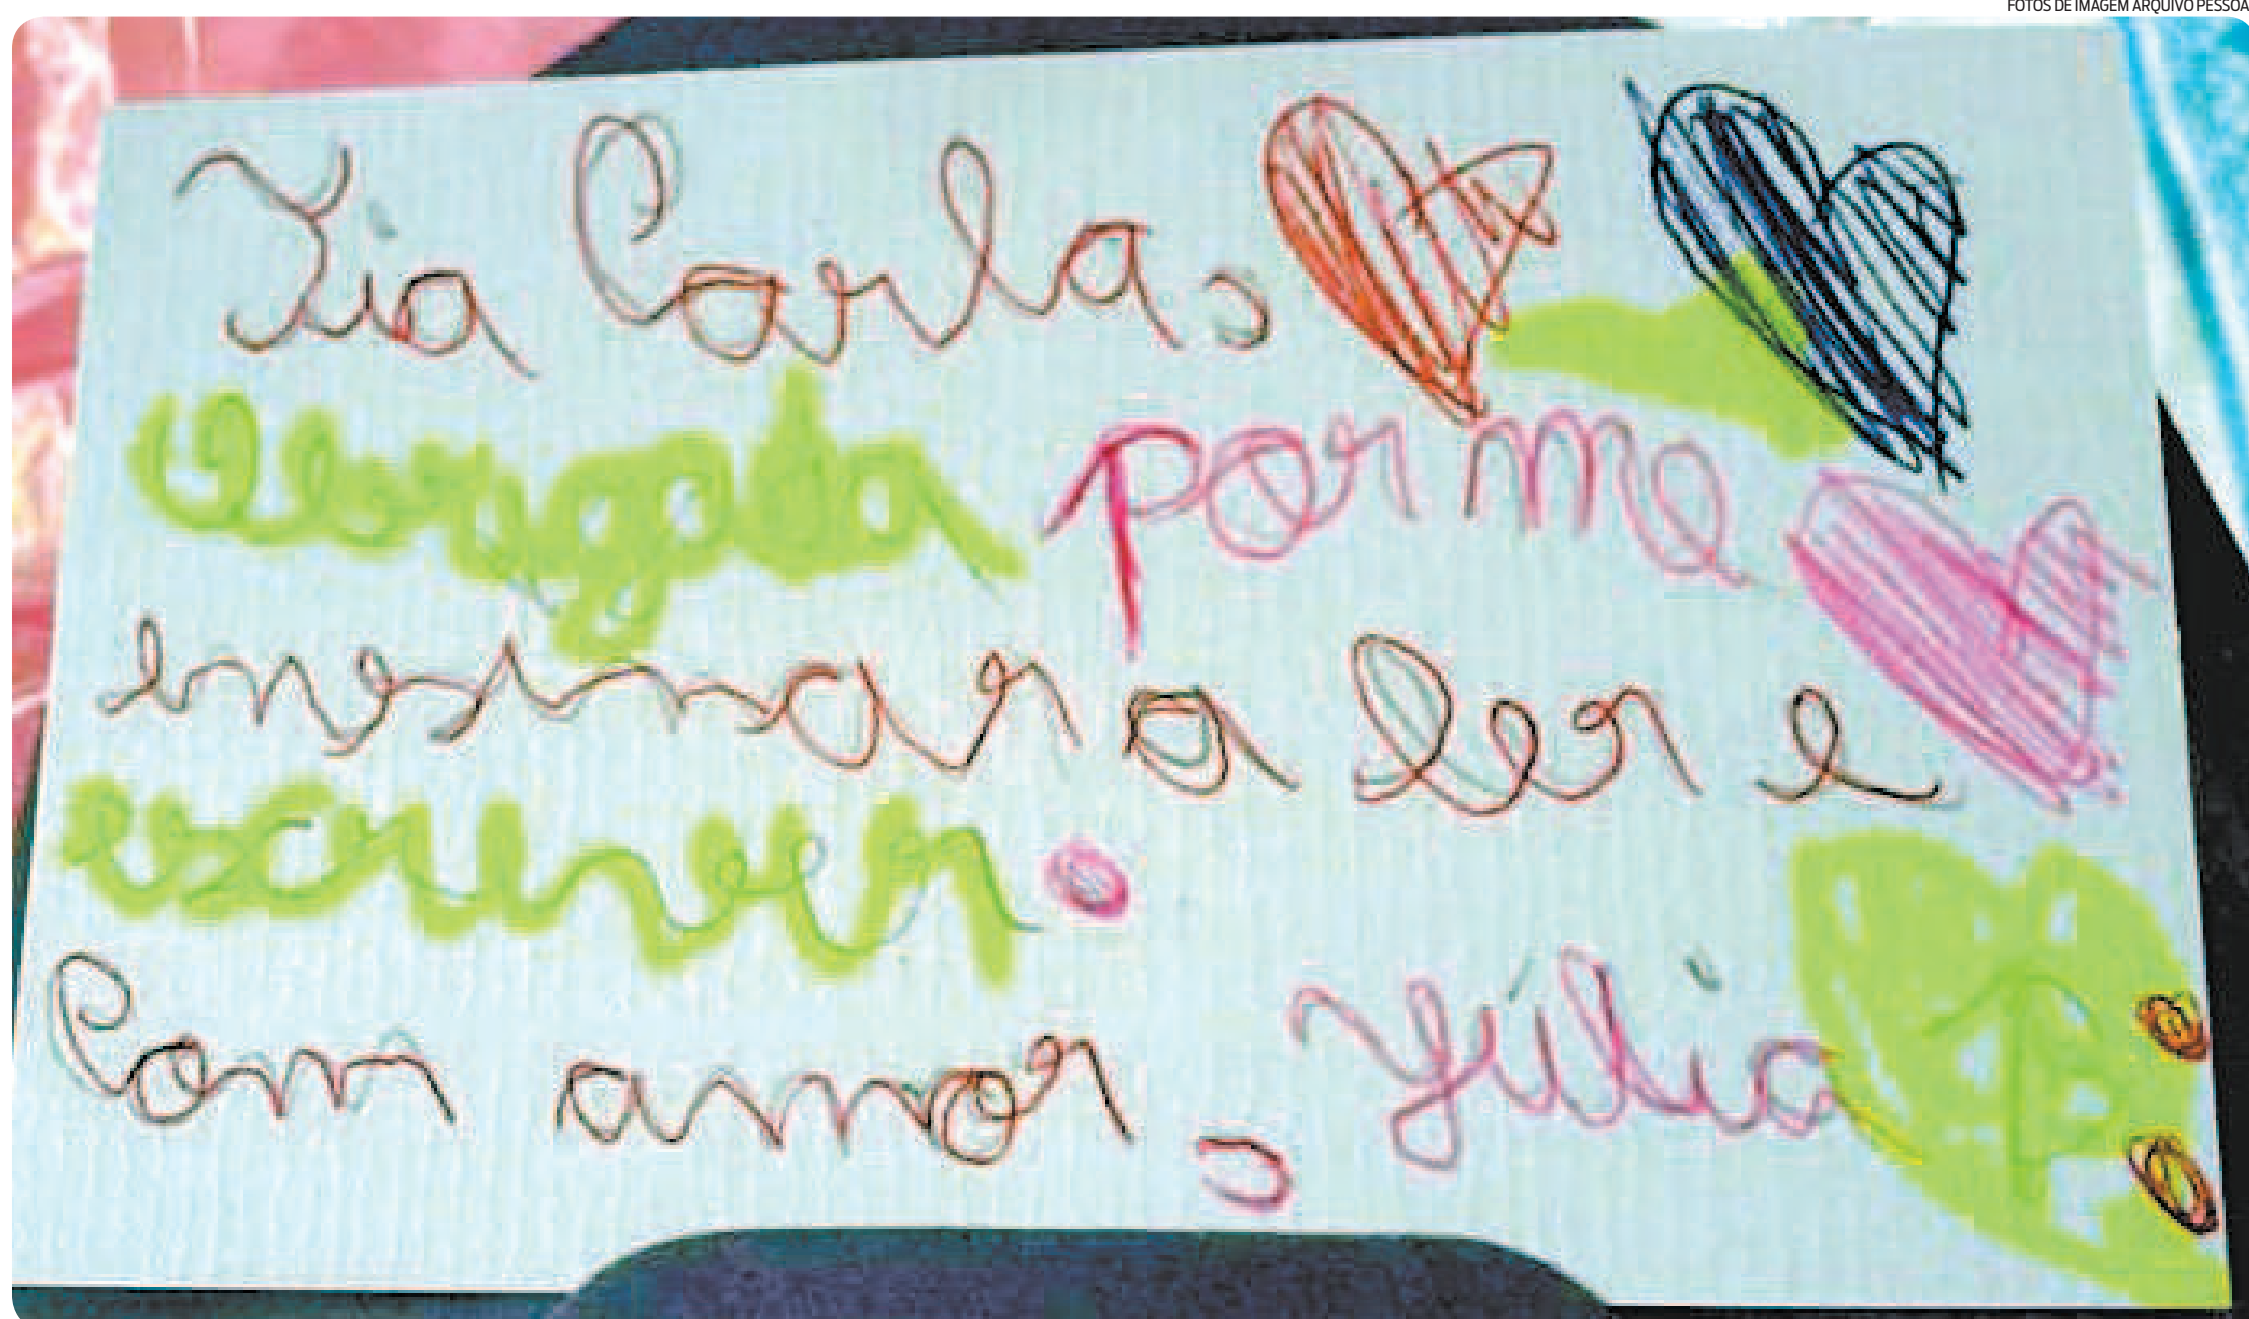 FOTOS DE IMAGEM ARQUIVO PESSOA
Tia Carla,
Obrigada por me
ensinar a ler e
escrever.
Com amor, Júlia